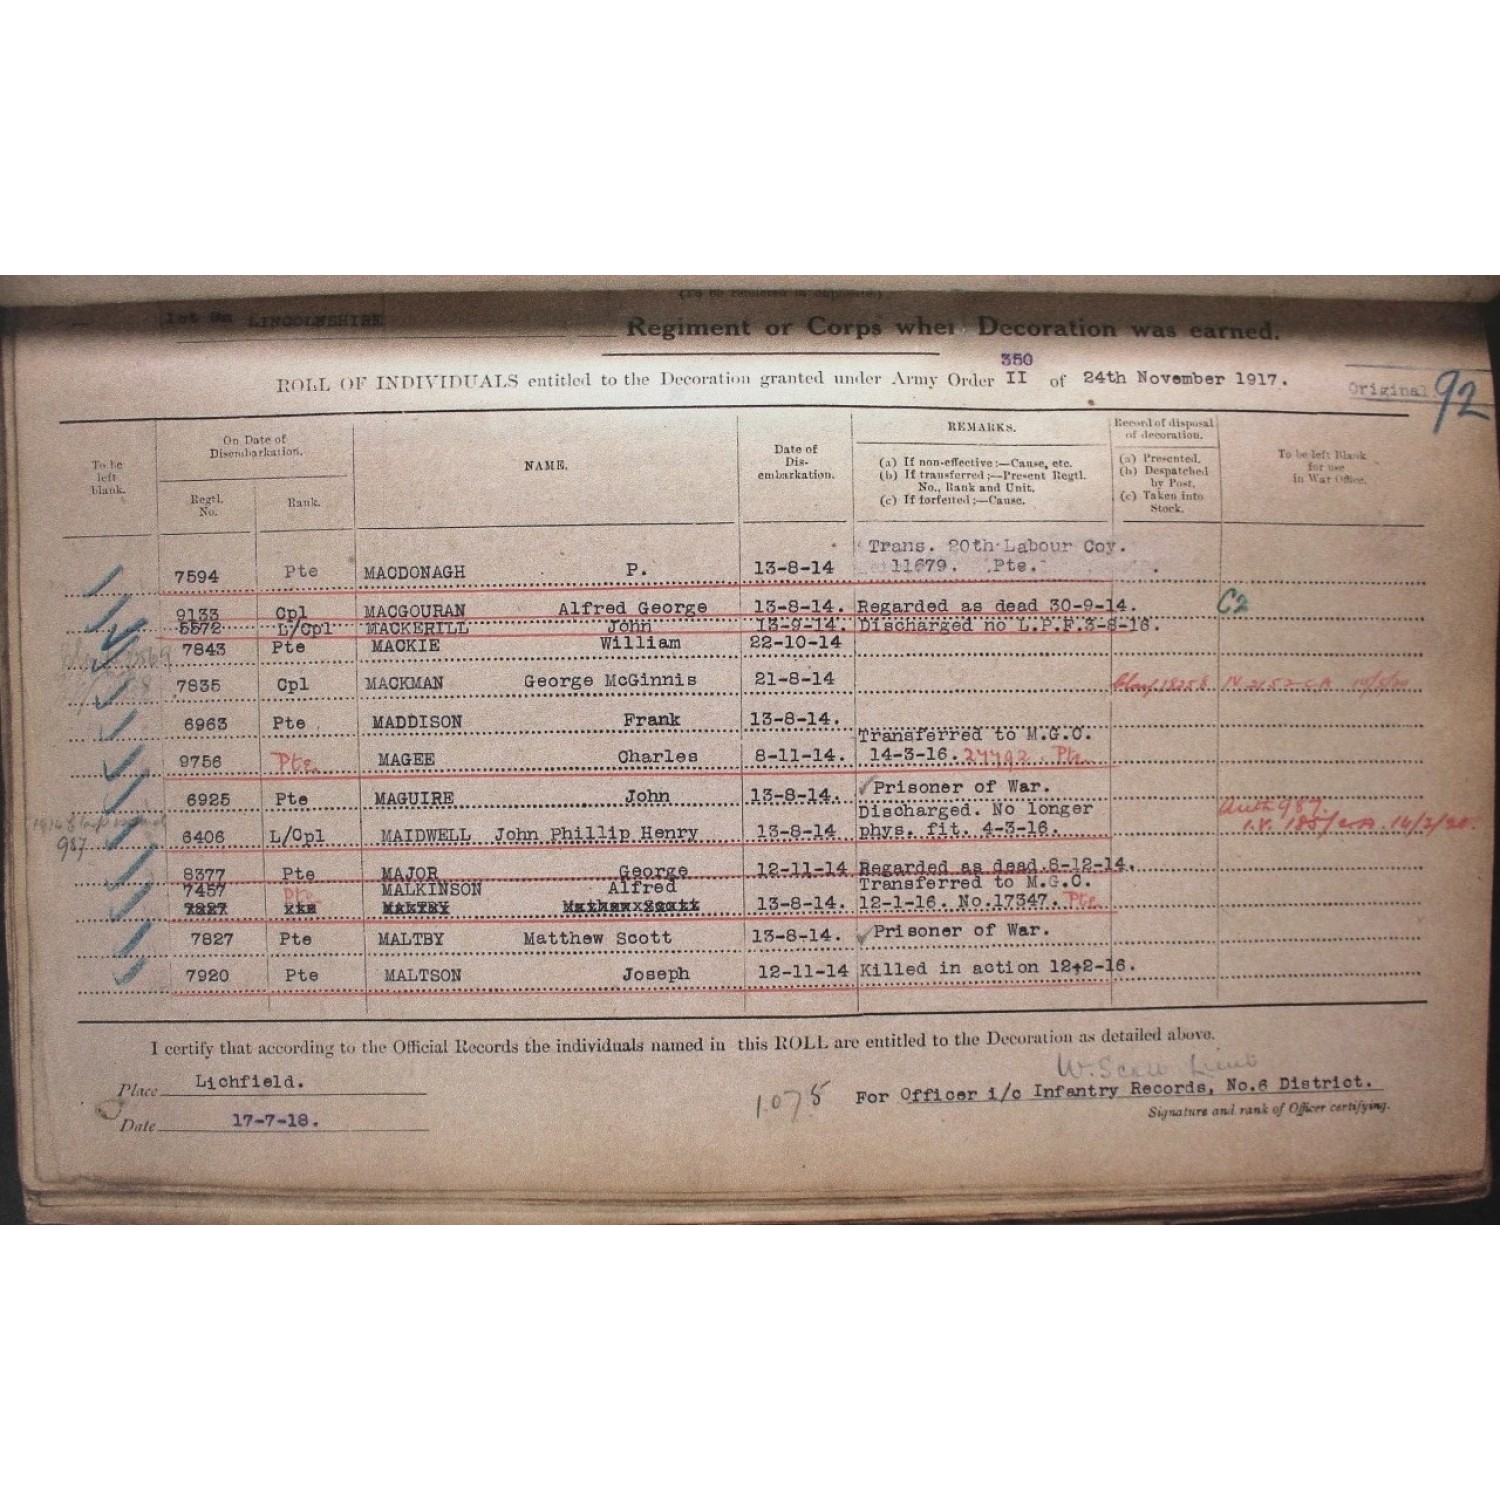 (To be rendered in duplicate.)
1st Bn LINCOLNSHIRE Regiment or Corps when Decoration was earned.
350
ROLL OF INDIVIDUALS entitled to the Decoration granted under Army Order II of 24th November 1917.
Original 92
To be left blank.
On Date of Disembarkation.
Regtl. No.
Rank.
NAME.
Date of Dis-embarkation.
REMARKS.
(a) If non-effective:—Cause, etc.
(b) If transferred:—Present Regtl. No., Rank and Unit.
(c) If forfeited:—Cause.
Record of disposal of decoration.
(a) Presented.
(b) Despatched by Post.
(c) Taken into Stock.
To be left Blank for use in War Office.
Trans. 20th Labour Coy.
7594 Pte MACDONAGH P. 13-8-14 11679. Pte.
9133 Cpl MACGOURAN Alfred George 13-8-14. Regarded as dead 30-9-14. C2
5572 L/Cpl MACKERILL John 13-9-14. Discharged no L.P.F.3-8-16.
7843 Pte MACKIE William 22-10-14
7835 Cpl MACKMAN George McGinnis 21-8-14
6963 Pte MADDISON Frank 13-8-14.
Transferred to M.G.C.
9756 Pte. MAGEE Charles 8-11-14. 14-3-16. 27792 Pte.
6925 Pte MAGUIRE John 13-8-14. Prisoner of War.
Discharged. No longer
987 6406 L/Cpl MAIDWELL John Phillip Henry 13-8-14. phys. fit. 4-3-16. 14/2/20.
8377 Pte MAJOR George 12-11-14 Regarded as dead.8-12-14.
7457 Pte MALKINSON Alfred Transferred to M.G.C.
7827 xtx MALTBY Matthew Scott 13-8-14. 12-1-16. No.17347. Pte
7827 Pte MALTBY Matthew Scott 13-8-14. Prisoner of War.
7920 Pte MALTSON Joseph 12-11-14 Killed in action 12-2-16.
I certify that according to the Official Records the individuals named in this ROLL are entitled to the Decoration as detailed above.
Place Lichfield.
W. Lieut
1078 For Officer i/c Infantry Records, No.6 District.
Signature and rank of Officer certifying.
Date 17-7-18.